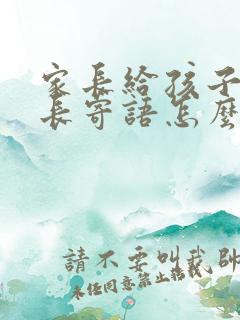 家長給孩子
長寄語怎麼
請不要叫我帥
未經同意禁止轉載